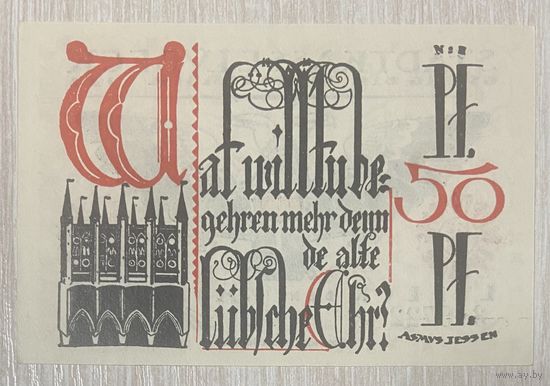 Wat willtu be=
gehren mehr denn
de alte
lübsche Ehr?
PF.
50
PF.
ASMUS JESSEN
www.ay.by